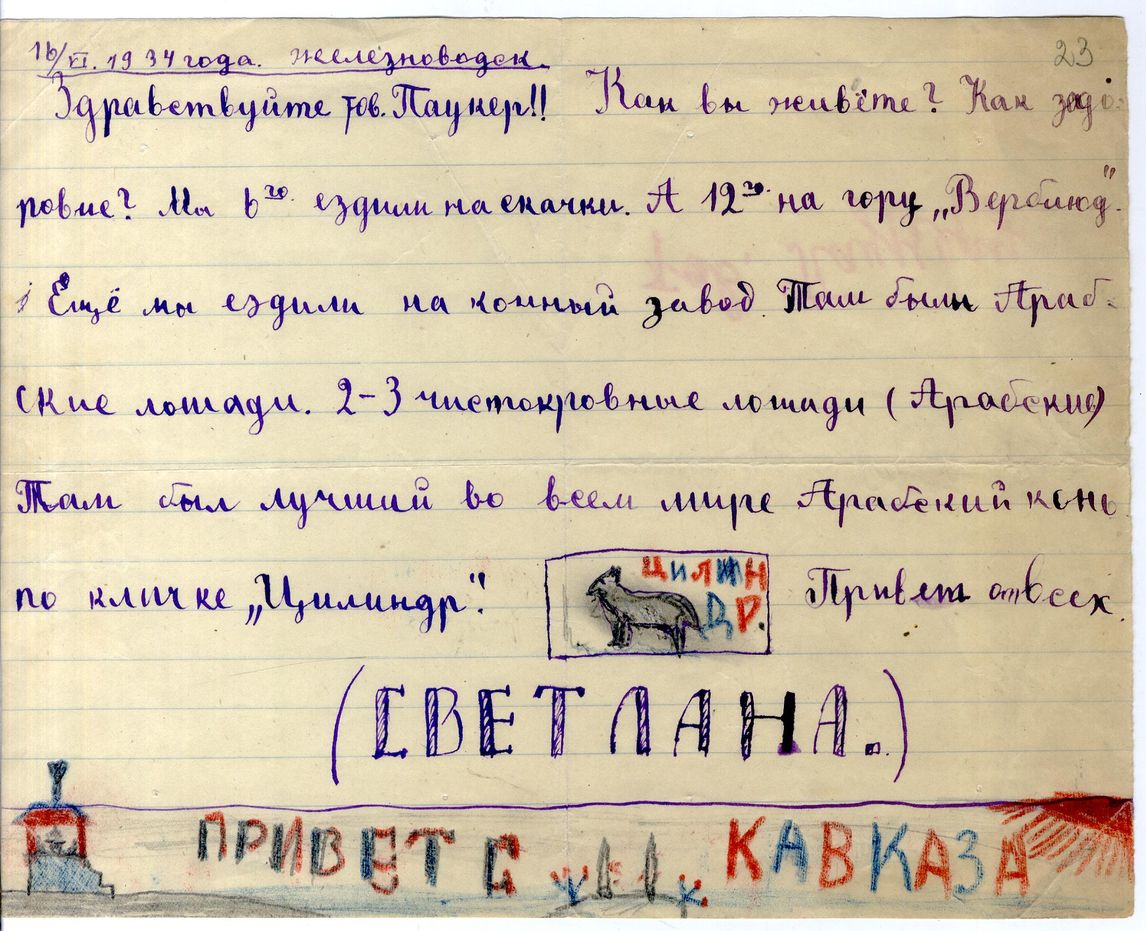 16/VI. 1934 года. Железноводск.
23
Здравствуйте тов. Паукер!! Как вы живёте? Как здо-
ровие? Мы 6го. ездили на скачки. А 12го. на гору „Верблюд".
Ещё мы ездили на конный завод. Там были Араб-
ские лошади. 2-3 чистокровные лошади (Арабские)
Там был лучший во всем мире Арабский конь
по кличке „Цилиндр". Привет от всех
ЦИЛИН
ДР.
(СВЕТЛАНА.)
ПРИВЕТ С КАВКАЗА